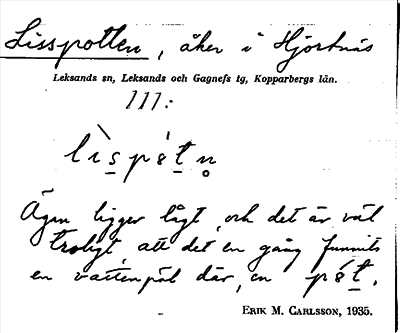 Lisspotten, åker i Hjortnäs
Leksands sn, Leksands och Gagnefs tg, Kopparbergs län.
111:
lìspótn̥
Ägen ligger lågt, och det är väl
troligt, att det en gång funnits
en vattenpöl där, en pót.
ERIK M. CARLSSON, 1935.